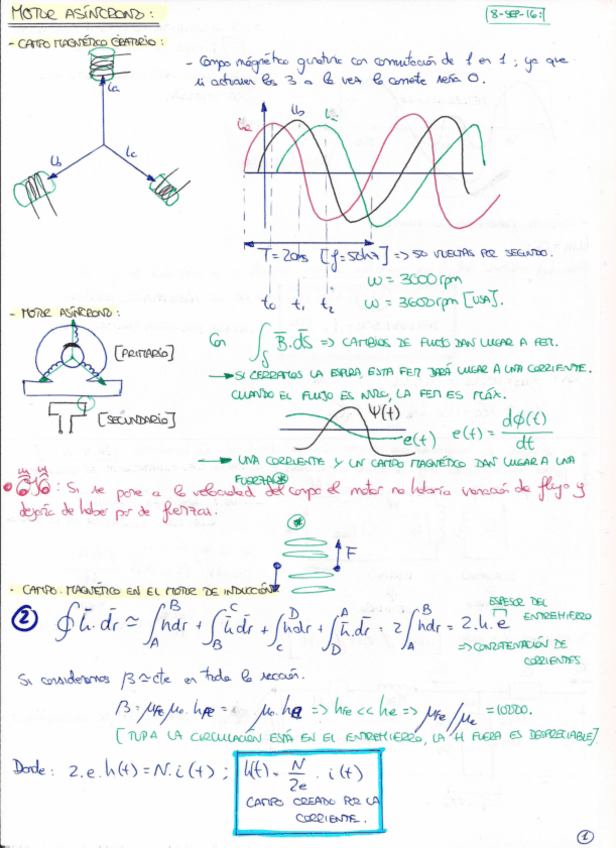 MOTOR ASÍNCRONO:
8-SEP-16:
- CAMPO MAGNÉTICO GIRATORIO:
ia
- Campo magnético giratorio con conmutación de 1 en 1; ya que
si activas los 3 a la vez la corriente sería 0.
ib
ic
ia
ib
ic
T=20ms [f=50hz] => 50 VUELTAS POR SEGUNDO.
ω = 3000 rpm
t0 t1 t2
ω = 3600 rpm [USA].
- MOTOR ASÍNCRONO:
[PRIMARIO]
[SECUNDARIO]
Con ∫S B̄.d̄s => CAMBIOS DE FLUJO DAN LUGAR A FEM.
→ SI CERRAMOS LA ESPIRA, ESTA FEM DARÁ LUGAR A UNA CORRIENTE.
CUANDO EL FLUJO ES NULO, LA FEM ES MÁX.
Ψ(t)
e(t)
e(t) = dϕ(t)/dt
→ UNA CORRIENTE Y UN CAMPO MAGNÉTICO DAN LUGAR A UNA
FUERZA
OJO: Si se pone a la velocidad del campo el motor no habría variación de flujo y
dejaría de haber par de fuerzas.
F
- CAMPO MAGNÉTICO EN EL MOTOR DE INDUCCIÓN
② ∮ h̄.d̄r ≃ ∫A^B hdr + ∫B^C h̄d̄r + ∫C^D hdr + ∫D^A h̄.d̄r = 2∫A^B hdr = 2.h.e
ESPESOR DEL
ENTREHIERRO
=> CONCATENACIÓN DE
CORRIENTES
Si consideramos β ≃ cte en toda la sección.
β = μFe μo. hFe = μo. he => hFe << he => μFe/μe = 10000.
[TODA LA CIRCULACIÓN ESTÁ EN EL ENTREHIERRO, LA H FUERA ES DESPRECIABLE]
Donde: 2.e.h(t) = N.i(t); h(t) = N/2e . i(t)
CAMPO CREADO POR LA
CORRIENTE.
1